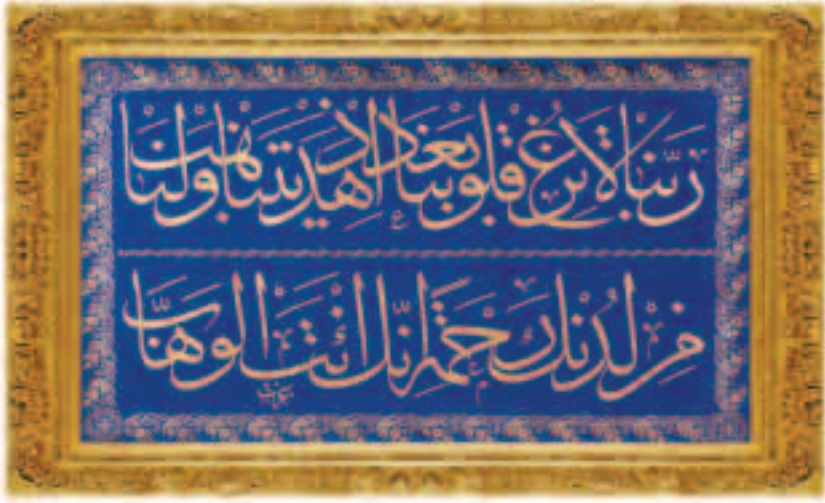 ربنا لا تزغ قلوبنا بعد اذ هديتنا وهب لنا
من لدنك رحمة انك انت الوهاب